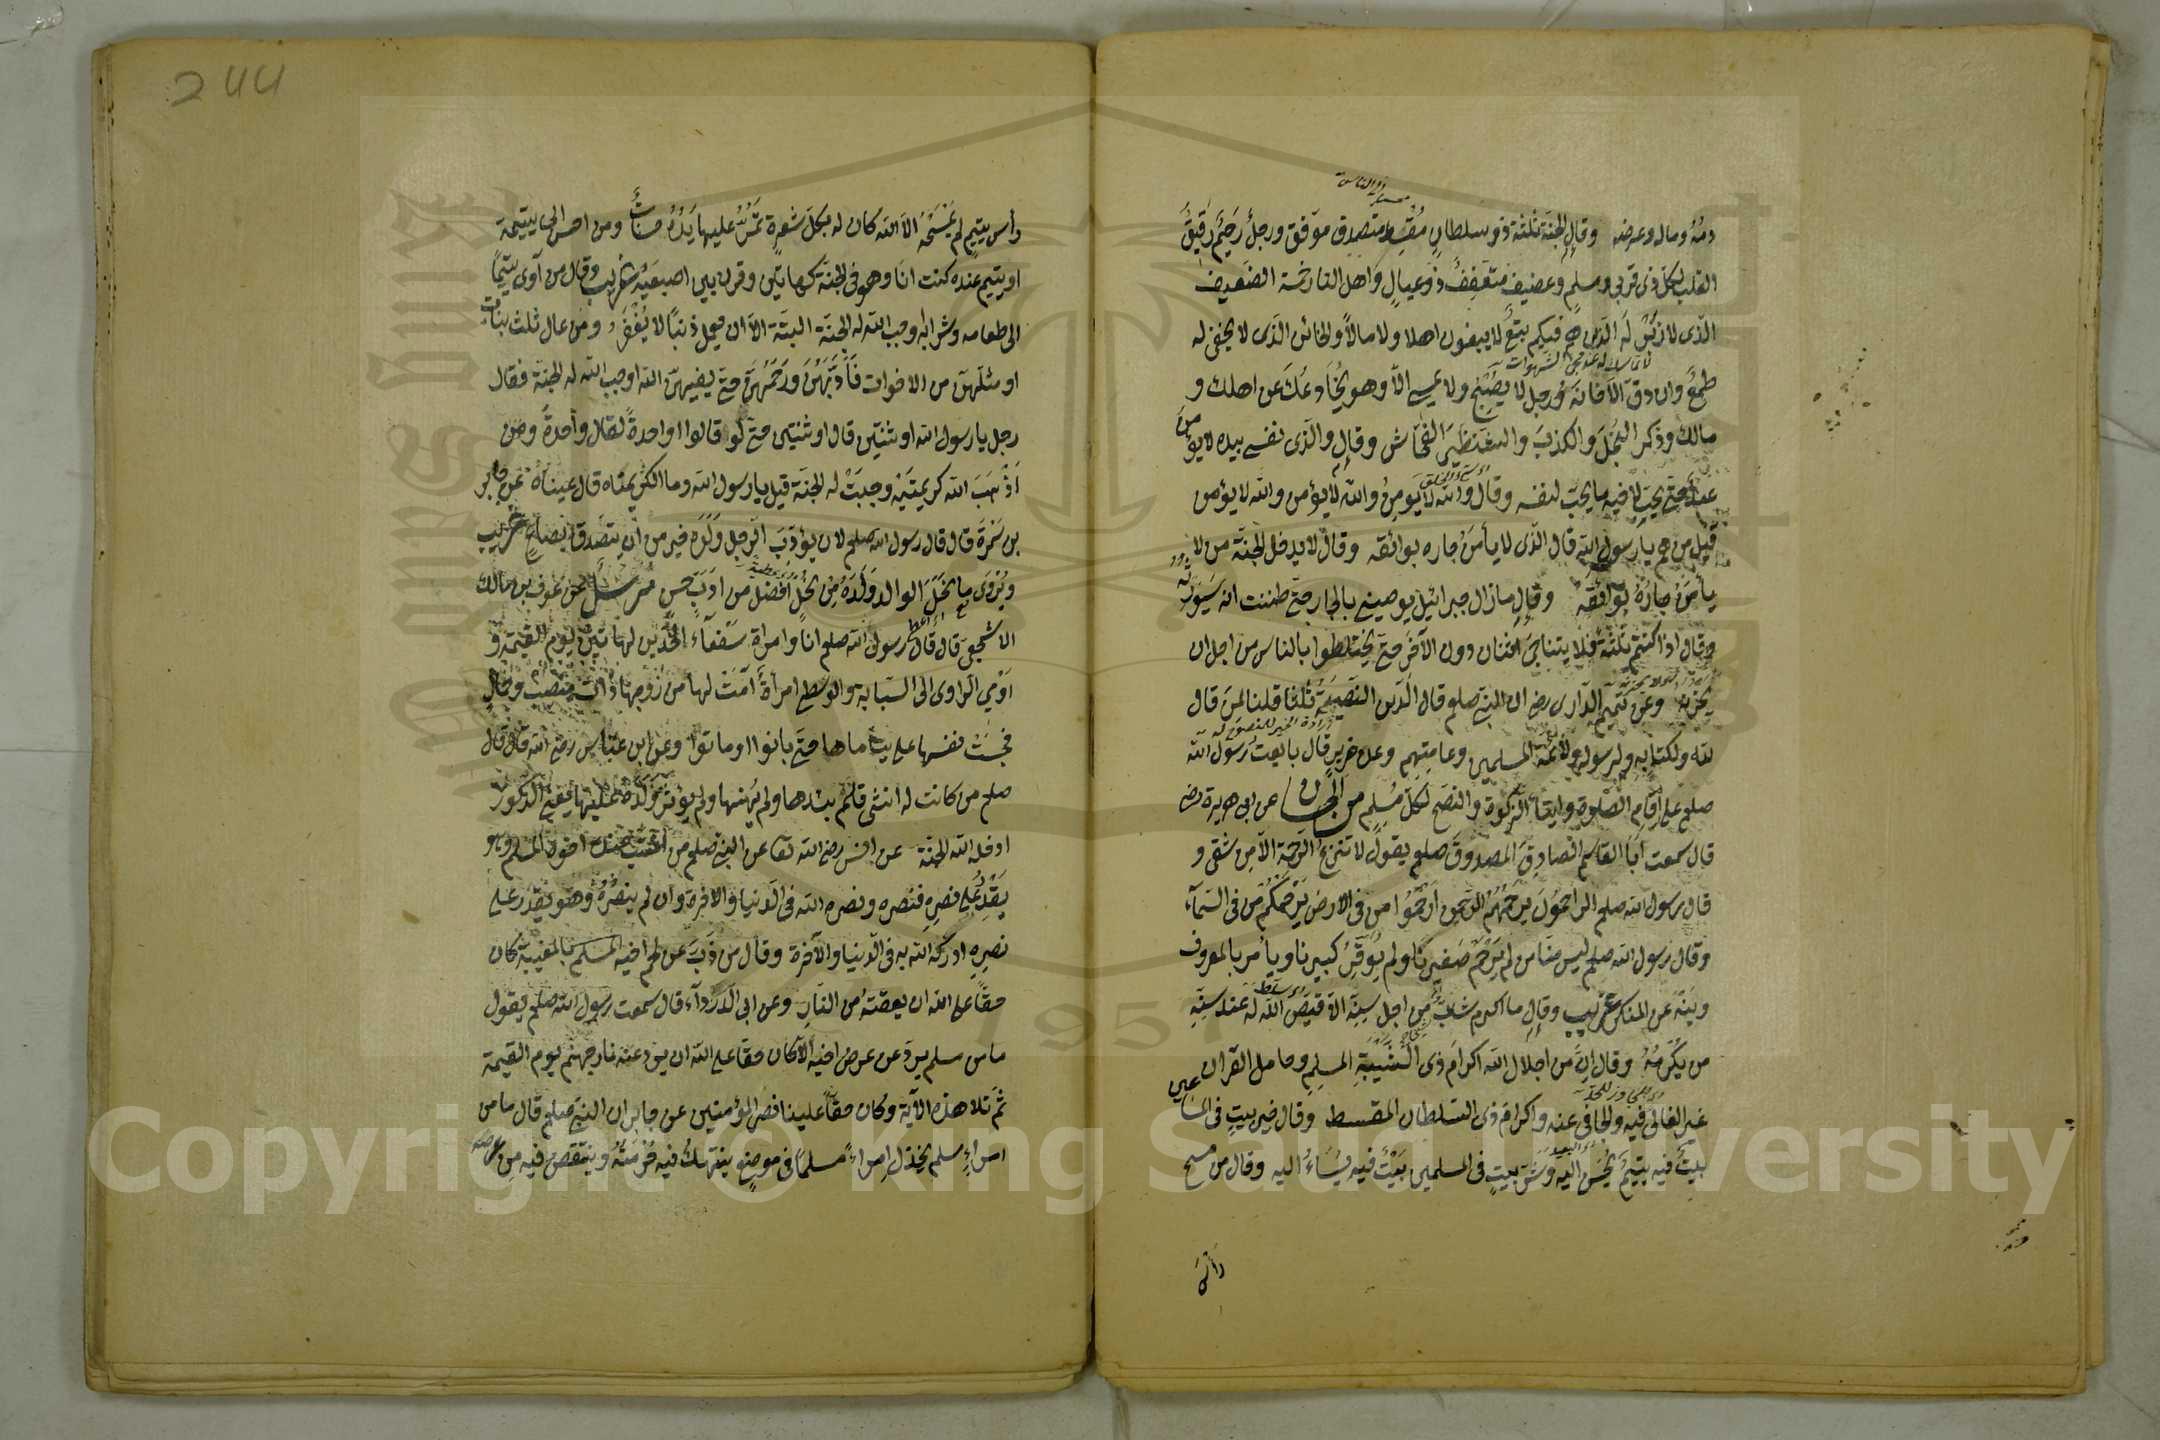 دمه وماله وعرضه وقال اهل الجنة ثلثة ذو سلطان مقسط متصدق موفق ورجل رحيم رقيق
القلب لكل ذي قربى ومسلم وعفيف متعفف ذو عيال واهل النار خمسة الضعيف
الذى لا زبر له الذين هم فيكم تبع لا يبغون اهلا ولا مالا والخائن الذى لا يخفى له
طمع وان دق الا خانه ورجل لا يصبح ولا يمسى الا وهو يخادعك عن اهلك و
مالك وذكر البخل والكذب والشنظير الفحاش وقال والذى نفسى بيده لا يؤمن
عبد حتى يحب لاخيه ما يحب لنفسه وقال والله لا يومن والله لا يؤمن والله لا يؤمن
قيل من هم يا رسول الله قال الذى لا يأمن جاره بوائقه وقال لا يدخل الجنة من لا
يأمن جاره بوائقه وقال مازال جبرائيل يوصينى بالجار حتى ظننت انه سيورثه
وقال اذا كنتم ثلثة فلا يتناجى اثنان دون الآخر حتى يختلطوا بالناس من اجل ان
يحزنه وعن تميم الدارى رض ان النبى صلعم قال الدين النصيحة ثلثا قلنا لمن قال
لله ولكتابه ولرسوله ولائمة المسلمين وعامتهم وعن جرير قال بايعت رسول الله
صلعم على اقام الصلوة وايتاء الزكوة والنصح لكل مسلم من الحسان عن ابى هريرة رض
قال سمعت ابا القاسم الصادق المصدوق صلعم يقول لا تنزع الرحمة الا من شقى و
قال رسول الله صلعم الراحمون يرحمهم الرحمن ارحموا من فى الارض يرحمكم من فى السماء
وقال رسول الله صلعم ليس منا من لم يرحم صغيرنا ولم يوقر كبيرنا ويأمر بالمعروف
وينه عن المنكر غريب وقال ما اكرم شاب من اجل سنه الا قيض الله له عند سنه
من يكرمه وقال ان من اجلال الله اكرام ذى الشيبة المسلم وحامل القران
غير الغالى فيه والجافى عنه واكرام ذى السلطان المقسط وقال خير بيت فى المسلمين
بيت فيه يتيم يحسن اليه وشر بيت فى المسلمين بيت فيه يساء اليه وقال من مسح
رأس
244
رأس يتيم لم يمسحه الا لله كان له بكل شعرة تمر عليها يده حسنات ومن احسن الى يتيمة
او يتيم عنده كنت انا وهو فى الجنة كهاتين وقرن بين اصبعيه غريب وقال من آوى يتيما
الى طعامه وشرابه اوجب الله له الجنة البتة الا ان يعمل ذنبا لا يغفر ومن عال ثلث بنات
او مثلهن من الاخوات فادبهن ورحمهن حتى يغنيهن الله اوجب الله له الجنة فقال
رجل يا رسول الله او ثنتين قال او ثنتين حتى لو قالوا او واحدة لقال واحدة ومن
اذهب الله كريمتيه وجبت له الجنة قيل يا رسول الله وما الكريمتاه قال عيناه عن جابر
بن سمرة قال قال رسول الله صلعم لان يؤدب الرجل ولده خير من ان يتصدق بصاع غريب
ويروى ما نحل الوالد ولده من نحل افضل من ادب حسن مرسل عن عوف بن مالك
الاشجعى قال قال رسول الله صلعم انا وامراة سفعاء الخدين كهاتين يوم القيمة و
اومى الراوى الى السبابة والوسطى امرأة آمت لها من زوجها ذات منصب وجمال
حبست نفسها على يتاماها حتى بانوا او ماتوا وعن ابن عباس رضى الله قال قال
صلعم من كانت له انثى فلم يئدها ولم يهنها ولم يؤثر ولده عليها يعنى الذكور
ادخله الله الجنة عن انس رضى الله تعا عن النبى صلعم من اغتيب عنده اخوه المسلم وهو
يقدر على نصره فنصره ونصره الله فى الدنيا والاخرة وان لم ينصره وهو يقدر على
نصره ادركه الله به فى الدنيا والآخرة وقال من ذب عن لحم اخيه المسلم بالمغيبة كان
حقا على الله ان يعتقه من النار وعن ابى الدرداء قال سمعت رسول الله صلعم يقول
ما من مسلم يرد عن عرض اخيه الا كان حقا على الله ان يرد عنه نار جهنم يوم القيمة
ثم تلا هذه الآية وكان حقا علينا نصر المؤمنين عن جابر ان النبى صلعم قال ما من
امراء مسلم يخذل امراء مسلما فى موضع ينتهك فيه حرمته وينتقص فيه من عرضه
1957
Copyright © King Saud University